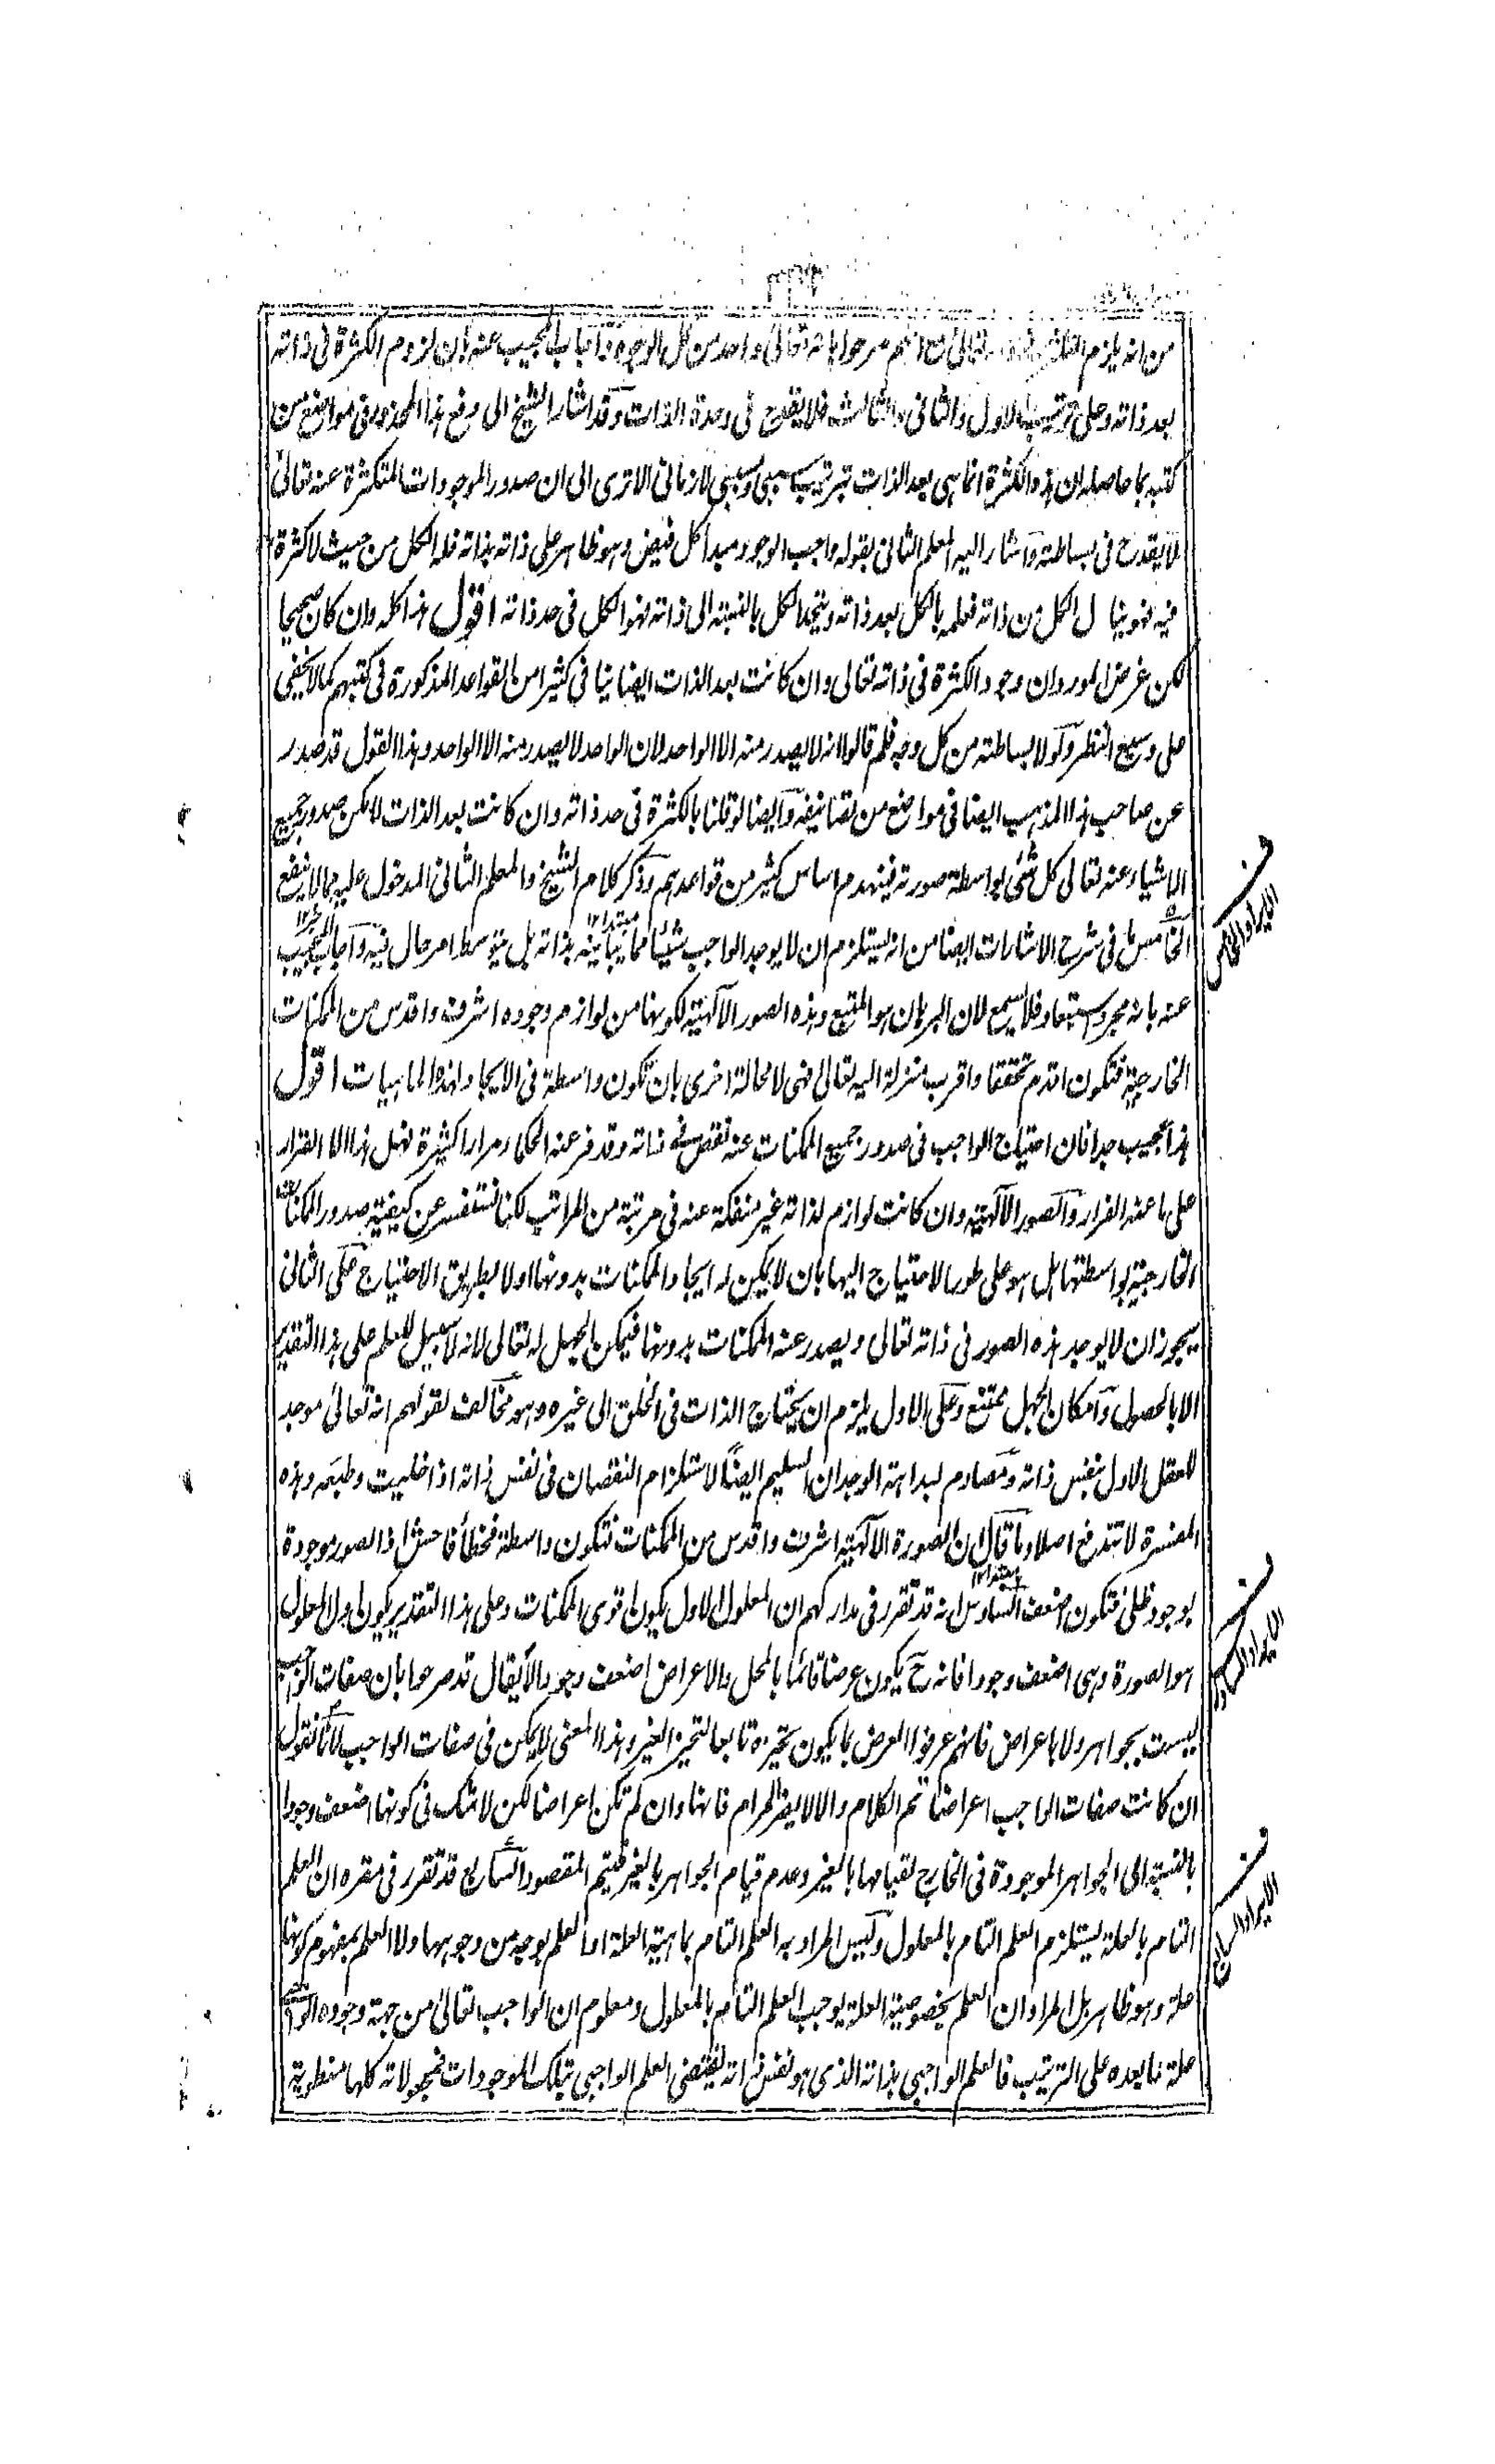 من انه يلزم التكثر في ذاته تعالى مع انهم صرحوا بانه تعالى واحد من كل الوجوه وآجاب المجيب عنه بان لزوم الكثرة في ذاته
بعد ذاته وعلى ترتيب الاول والثاني والثالث فلا يقدح في وحدة الذات وقد اشار الشيخ الى دفع هذا المحذور في مواضع من
كتبه بما حاصله ان هذه الكثرة انما هي بعد الذات بترتيب سببي ومسببي لا زماني الا ترى الى ان صدور الموجودات المتكثرة عنه تعالى
لا يقدح في بساطته وآشار اليه المعلم الثاني بقوله واجب الوجود مبدأ كل فيض وهو ظاهر على ذاته بذاته فله الكل من حيث لا كثرة
فيه فهو ينال الكل من ذاته فعلمه بالكل بعد ذاته ويتحد الكل بالنسبة الى ذاته فهو الكل في حد ذاته اقول هذا كله وان كان صحيحا
لكن غرض المورد ان وجود الكثرة في ذاته تعالى وان كانت بعد الذات ايضا ينافي كثيرا من القواعد المذكورة في كتبهم كما لا يخفى
على وسيع النظر وآولا بساطته من كل وجه فلم قالوا انه لا يصدر منه الا الواحد لان الواحد لا يصدر منه الا الواحد وهذا القول قد صدر
عن صاحب هذا المذهب ايضا في مواضع من تصانيفه وآيضا لو قلنا بالكثرة في حد ذاته وان كانت بعد الذات لامكن صدور جميع
الاشياء عنه تعالى كل شئ بواسطة صورته فينهدم اساس كثير من قواعدهم وذكر كلام الشيخ والمعلم الثاني المدخول عليه مما لا ينفع
الخامس ما في شرح الاشارات ايضا من انه يستلزم ان لا يوجد الواجب شيئا مما يباينه بذاته بل بتوسط امر حال فيه وآجاب المجيب
عنه بانه مجرد استبعاد فلا يسمع لان البرهان هو المتبع وهذه الصور الآلهية لكونها من لوازم وجوده اشرف واقدس من الممكنات
الخارجية فتكون اقدم تحققا واقرب منزلة اليه تعالى فهي لا محالة احرى بان تكون واسطة في الايجاد لهذه الماهيات اقول
هذا عجيب جدا فان احتياج الواجب في صدور جميع الممكنات عنه نقص في ذاته وقد فر عنه الحكماء مرارا كثيرة فهل هذا الا الفرار
على ما عنه الفرار وآلصور الآلهية وان كانت لوازم لذاته غير منفكة عنه في مرتبة من المراتب لكنا نستفسر عن كيفية صدور الممكنات
الخارجية بواسطتها هل هو على طور الاحتياج اليها بان لا يمكن له ايجاد الممكنات بدونها او لا بطريق الاحتياج فعلى الثاني
يجوز ان لا يوجد هذه الصور في ذاته تعالى ويصدر عنه الممكنات بدونها فيمكن الجهل له تعالى لانه لا سبيل للعلم على هذا التقدير
الا بالحصول وآمكان الجهل ممتنع وعلى الاول يلزم ان يحتاج الذات في الخلق الى غيره وهو مخالف لقولهم انه تعالى موجد
للعقل الاول بنفس ذاته ومصادم لبداهة الوجدان السليم ايضا لاستلزام النقصان في نفس ذاته اذا خليت وطبعه وهذه
المفسدة لا تندفع اصلا وما قال ان الصورة الآلهية اشرف واقدس من الممكنات فتكون واسطة فخطأ فاحش اذ الصور موجودة
بوجود ظلي فتكون اضعف السادس انه قد تقرر في مداركهم ان المعلول الاول يكون اقوى الممكنات وعلى هذا التقدير يكون اول المعلول
هو الصورة وهي اضعف وجودا فانه ح يكون عرضا قائما بالمحل والاعراض اضعف وجودا لآيقال قد صرحوا بان صفات الواجب
ليست بجواهر ولا باعراض فانهم عرفوا العرض بما يكون تحيزه تابعا لتحيز الغير وهذا المعنى لا يمكن في صفات الواجب لآنا نقول
ان كانت صفات الواجب اعراضا تم الكلام والا لا يضر المرام فانها وان لم تكن اعراضا لكن لا شك في كونها اضعف وجودا
بالنسبة الى الجواهر الموجودة في الخارج لقيامها بالغير وعدم قيام الجواهر بالغير فيتم المقصود السابع قد تقرر في مقره ان العلم
التام بالعلة يستلزم العلم التام بالمعلول وليس المراد به العلم التام بماهية العلة او العلم بوجه من وجوهها ولا العلم بمفهوم كونها
علة وهو ظاهر بل المراد ان العلم بخصوصية العلة يوجب العلم التام بالمعلول ومعلوم ان الواجب تعالى من جهة وجوده الواجبي
علة لما بعده على الترتيب فالعلم الواجبي بذاته الذي هو نفس ذاته يقتضي العلم الواجبي بتلك الموجودات فمجعولاته كلها منطوية
الايراد الخامس
الايراد السادس
الايراد السابع